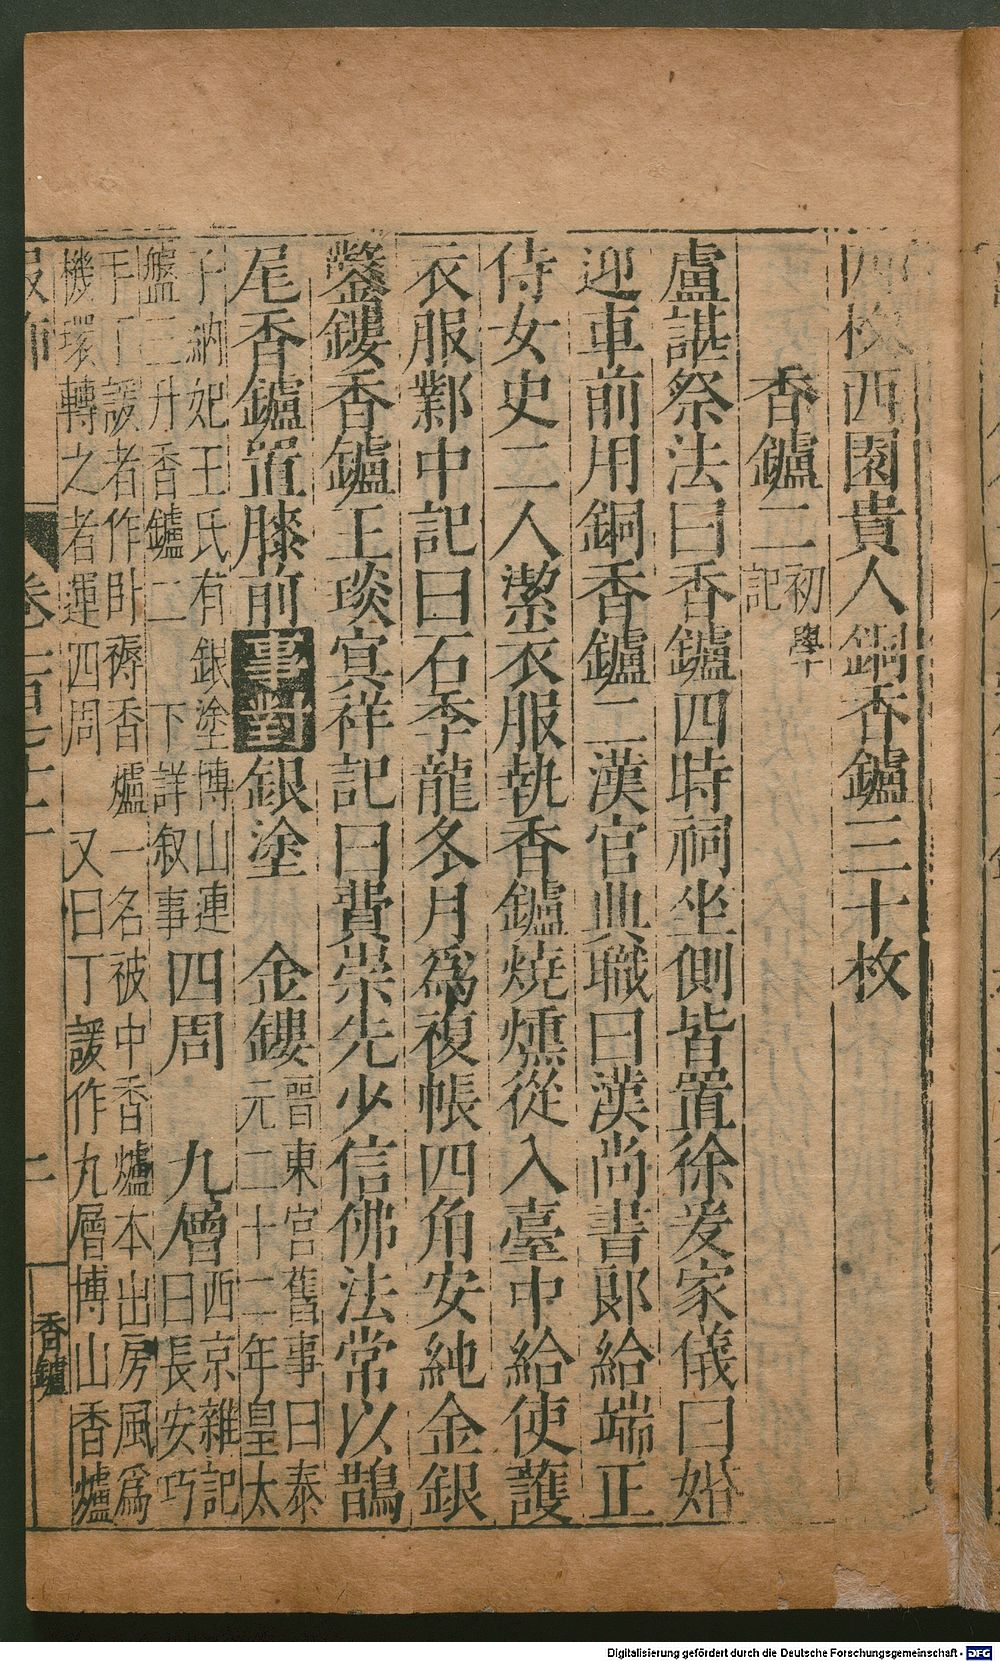 四枚西園貴人銅香鑪三十枚
香鑪二初學
記
盧諶祭法曰香鑪四時祠坐側皆置徐爰家儀曰婚
迎車前用銅香鑪二漢官典職曰漢尚書郎給端正
侍女史二人潔衣服執香鑪燒燻從入臺中給使護
衣服鄴中記曰石季龍冬月爲複帳四角安純金銀
鑿鏤香鑪王琰冥祥記曰費崇先少信佛法常以鵲
尾香鑪置膝前事對銀塗 金鏤晉東宮舊事曰泰
元二十二年皇太
子納妃王氏有銀塗博山連
鑪三升香鑪二 下詳叙事四周 九層西京雜記
曰長安巧
手丁諼者作卧褥香爐一名被中香爐本出房風爲
機環轉之者運四周 又曰丁諼作九層博山香爐
服飾 卷一百七十一 二 香鑪
Digitalisierung gefördert durch die Deutsche Forschungsgemeinschaft - DFG